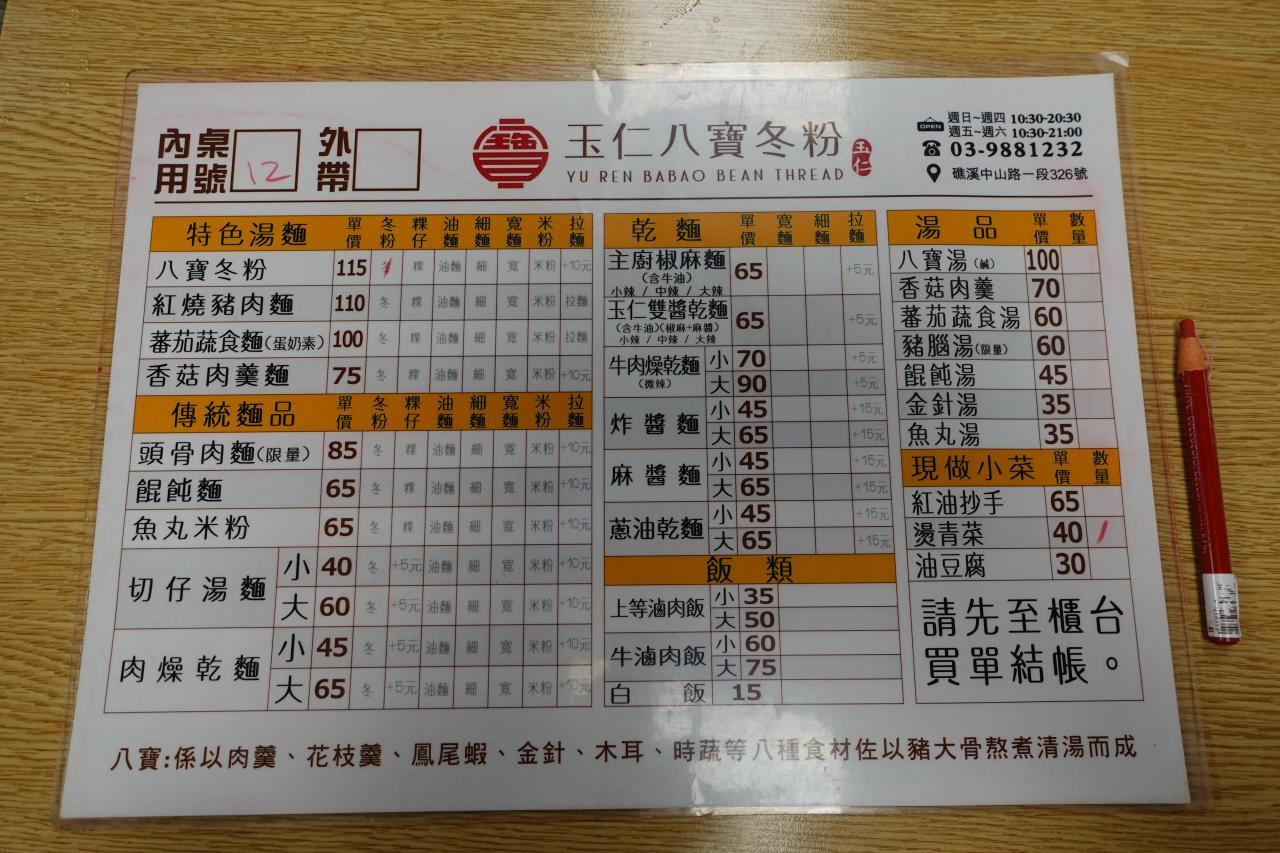 內用 桌號 12 外帶
玉仁八寶冬粉 玉仁
YU REN BABAO BEAN THREAD
OPEN 週日~週四 10:30-20:30
週五~週六 10:30-21:00
03-9881232
礁溪中山路一段326號
特色湯麵 單價 冬粉 粿仔 油麵 細麵 寬麵 米粉 拉麵
八寶冬粉 115 冬 粿 油麵 細 寬 米粉 +10元
紅燒豬肉麵 110 冬 粿 油麵 細 寬 米粉 拉麵
蕃茄蔬食麵(蛋奶素) 100 冬 粿 油麵 細 寬 米粉 拉麵
香菇肉羹麵 75 冬 粿 油麵 細 寬 米粉 +10元
傳統麵品 單價 冬粉 粿仔 油麵 細麵 寬麵 米粉 拉麵
頭骨肉麵(限量) 85 冬 粿 油麵 細 寬 米粉 +10元
餛飩麵 65 冬 粿 油麵 細 寬 米粉 +10元
魚丸米粉 65 冬 粿 油麵 細 寬 米粉 +10元
切仔湯麵 小 40 冬 +5元 油麵 細 寬 米粉 +10元
大 60 冬 +5元 油麵 細 寬 米粉 +10元
肉燥乾麵 小 45 冬 +5元 油麵 細 寬 米粉 +10元
大 65 冬 +5元 油麵 細 寬 米粉 +10元
乾麵 單價 寬麵 細麵 拉麵
主廚椒麻麵 65 +5元
(含牛油)
小辣 / 中辣 / 大辣
玉仁雙醬乾麵 65 +5元
(含牛油)(椒麻+麻醬)
小辣 / 中辣 / 大辣
牛肉燥乾麵 小 70 +5元
(微辣) 大 90 +5元
炸醬麵 小 45 +15元
大 65 +15元
麻醬麵 小 45 +15元
大 65 +15元
蔥油乾麵 小 45 +15元
大 65 +15元
飯類
上等滷肉飯 小 35
大 50
牛滷肉飯 小 60
大 75
白飯 15
湯品 單價 數量
八寶湯(鹹) 100
香菇肉羹 70
蕃茄蔬食湯 60
豬腦湯(限量) 60
餛飩湯 45
金針湯 35
魚丸湯 35
現做小菜 單價 數量
紅油抄手 65
燙青菜 40 /
油豆腐 30
請先至櫃台
買單結帳。
八寶:係以肉羹、花枝羹、鳳尾蝦、金針、木耳、時蔬等八種食材佐以豬大骨熬煮清湯而成